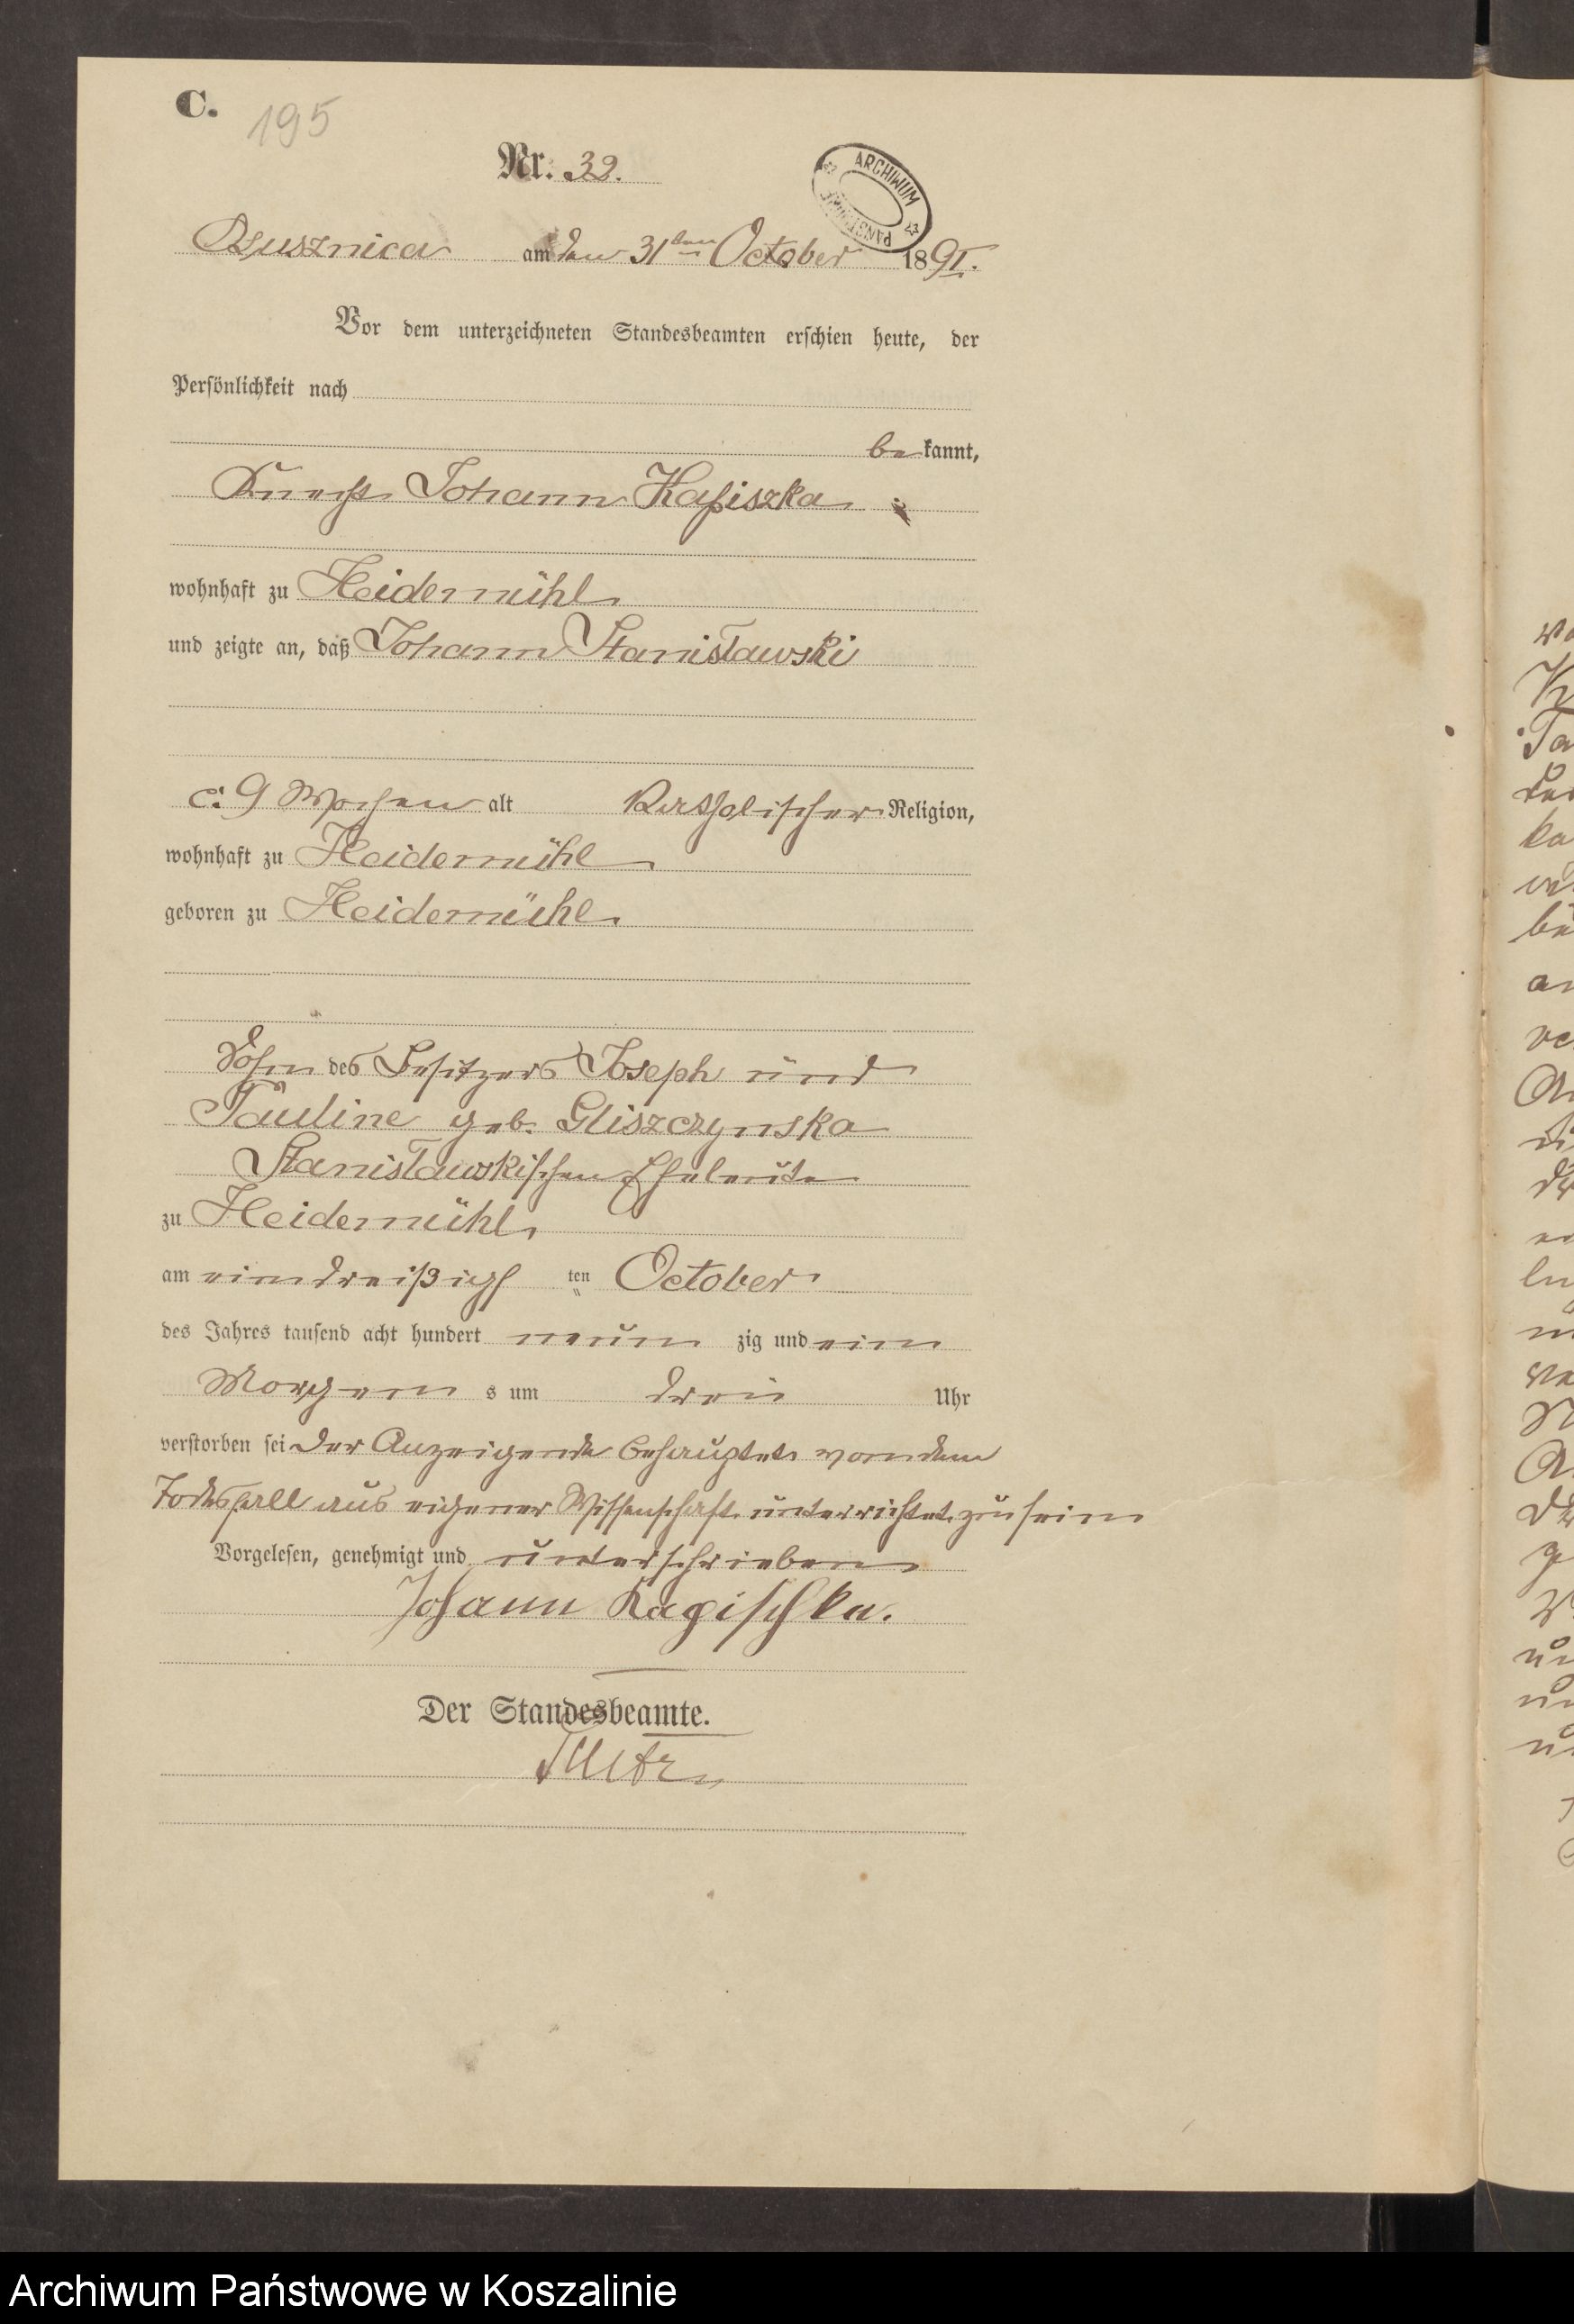 C.
195
Nr. 39.
ARCHIWUM PAŃSTWOWE
am den 31ten October 1891.
Vor dem unterzeichneten Standesbeamten erschien heute, der
Persönlichkeit nach
be kannt,
Knecht Johann
wohnhaft zu Heidemühl
und zeigte an, daß Johann Stanisławski
c. 9 Wochen alt katholischer Religion,
wohnhaft zu Heidemühl
geboren zu Heidemühl
Sohn des Besitzers Joseph und
Pauline geb. Gliszczynska
Stanisławskischen Eheleute
zu Heidemühl
am eindreißigst ten October
des Jahres tausend acht hundert neun zig und ein
Morgen s um drei Uhr
verstorben sei der Anzeigende behauptet von dem
Todesfall aus eigener Wissenschaft unterrichtet zu sein
Vorgelesen, genehmigt und unterschrieben
Johann
Der Standesbeamte.
Archiwum Państwowe w Koszalinie